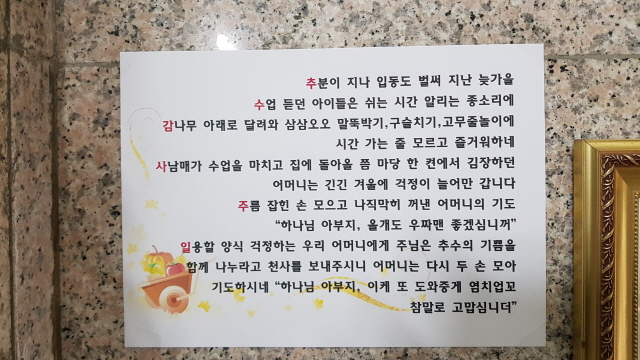 추분이 지나 입동도 벌써 지난 늦가을
수업 듣던 아이들은 쉬는 시간 알리는 종소리에
감나무 아래로 달려와 삼삼오오 말뚝박기,구슬치기,고무줄놀이에
시간 가는 줄 모르고 즐거워하네
사남매가 수업을 마치고 집에 돌아올 쯤 마당 한 켠에서 김장하던
어머니는 긴긴 겨울에 걱정이 늘어만 갑니다
주름 잡힌 손 모으고 나직막히 꺼낸 어머니의 기도
“하나님 아부지, 올개도 우짜맨 좋겠심니꺼”
일용할 양식 걱정하는 우리 어머니에게 주님은 추수의 기쁨을
함께 나누라고 천사를 보내주시니 어머니는 다시 두 손 모아
기도하시네 “하나님 아부지, 이케 또 도와중게 염치업꼬
참말로 고맙심니더”